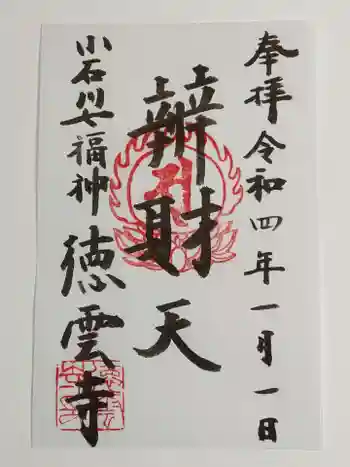 奉拝 令和四年一月一日
辨財天
小石川七福神 徳雲寺